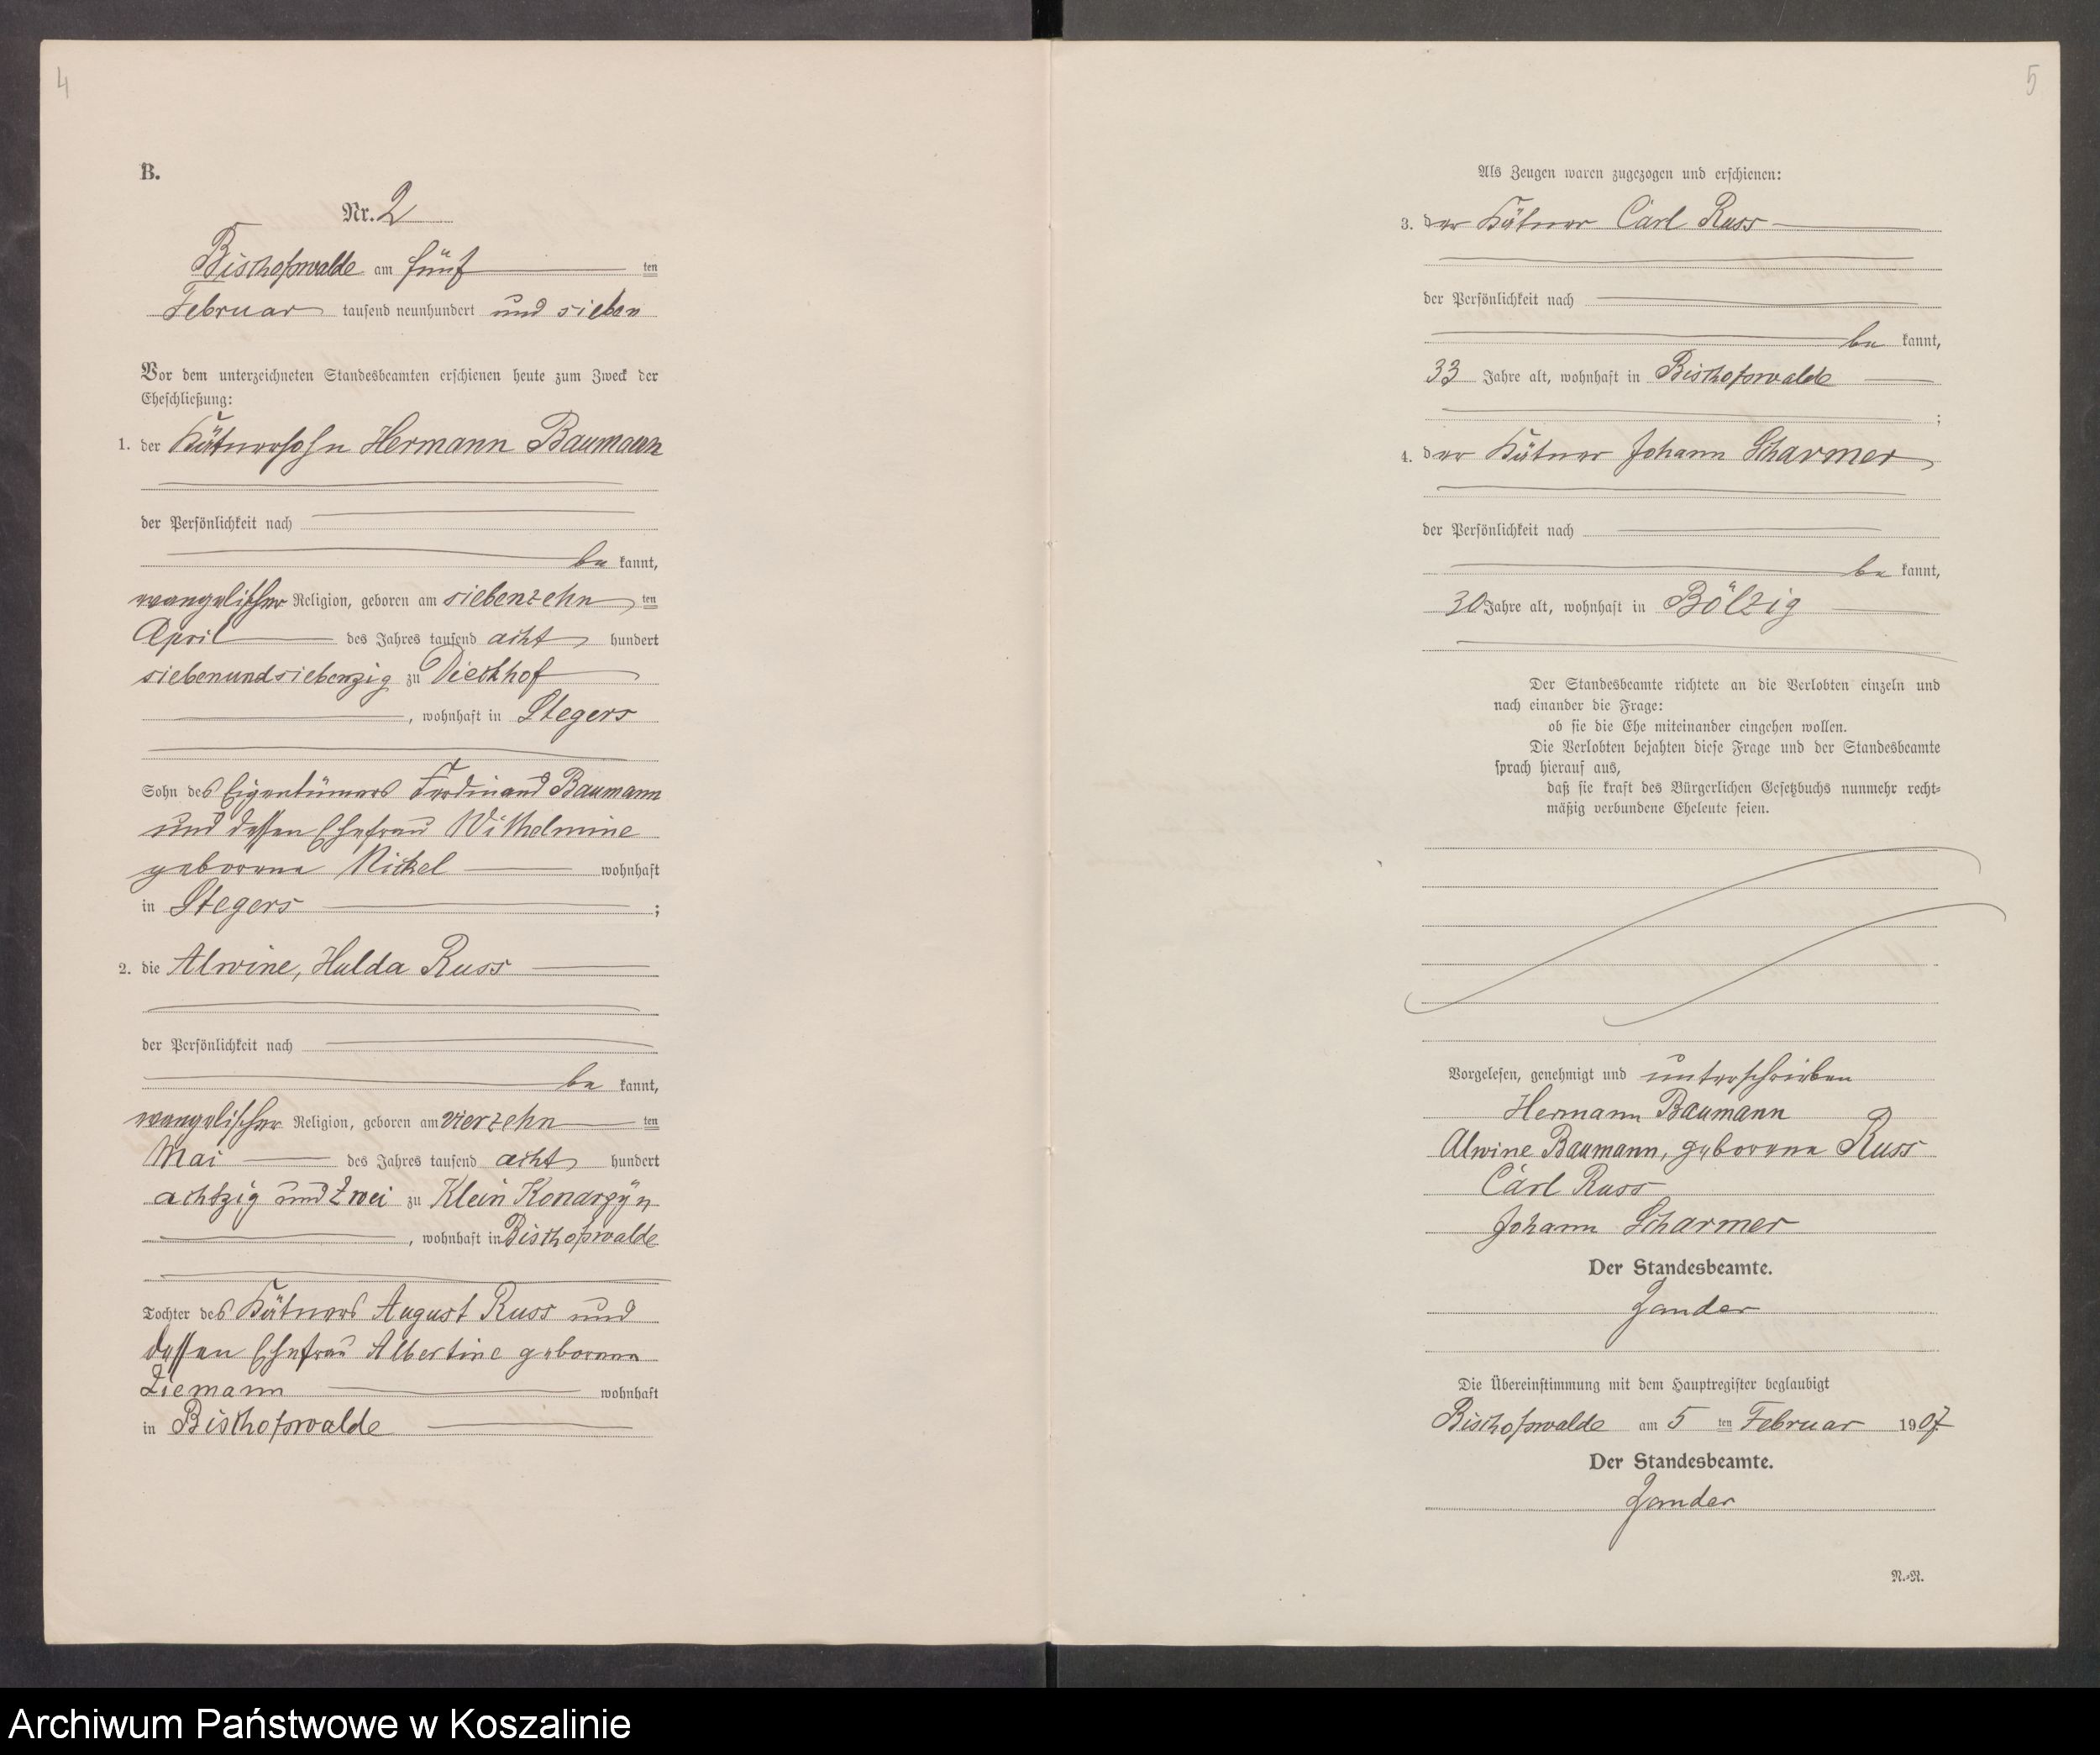 4
B.
Nr. 2
Bischofswalde am fünf ten
Februar tausend neunhundert und sieben
Vor dem unterzeichneten Standesbeamten erschienen heute zum Zweck der
Eheschließung:
1. der Kätnersohn Hermann Baumann
der Persönlichkeit nach
be kannt,
evangelischer Religion, geboren am siebenzehn ten
April des Jahres tausend acht hundert
siebenundsiebenzig zu Dickhof
, wohnhaft in Stegers
Sohn des Eigentümers Ferdinand Baumann
und dessen Ehefrau Wilhelmine
geborene Nickel wohnhaft
in Stegers ;
2. die Alwine, Hulda Russ
der Persönlichkeit nach
be kannt,
evangelischer Religion, geboren am vierzehn ten
Mai des Jahres tausend acht hundert
achtzig und zwei zu Klein Konarzyn
, wohnhaft in Bischofswalde
Tochter des Kätners August Russ und
dessen Ehefrau Albertine geborene
Ziemann wohnhaft
in Bischofswalde
5
Als Zeugen waren zugezogen und erschienen:
3. der Kätner Carl Russ
der Persönlichkeit nach
be kannt,
33 Jahre alt, wohnhaft in Bischofswalde
;
4. der Kätner Johann Scharmer
der Persönlichkeit nach
be kannt,
30 Jahre alt, wohnhaft in Bölzig
Der Standesbeamte richtete an die Verlobten einzeln und
nach einander die Frage:
ob sie die Ehe miteinander eingehen wollen.
Die Verlobten bejahten diese Frage und der Standesbeamte
sprach hierauf aus,
daß sie kraft des Bürgerlichen Gesetzbuchs nunmehr recht-
mäßig verbundene Eheleute seien.
Vorgelesen, genehmigt und unterschrieben
Hermann Baumann
Alwine Baumann, geborene Russ
Carl Russ
Johann Scharmer
Der Standesbeamte.
Zander
Die Übereinstimmung mit dem Hauptregister beglaubigt
Bischofswalde am 5 ten Februar 1907
Der Standesbeamte.
Zander
N.-R.
Archiwum Państwowe w Koszalinie